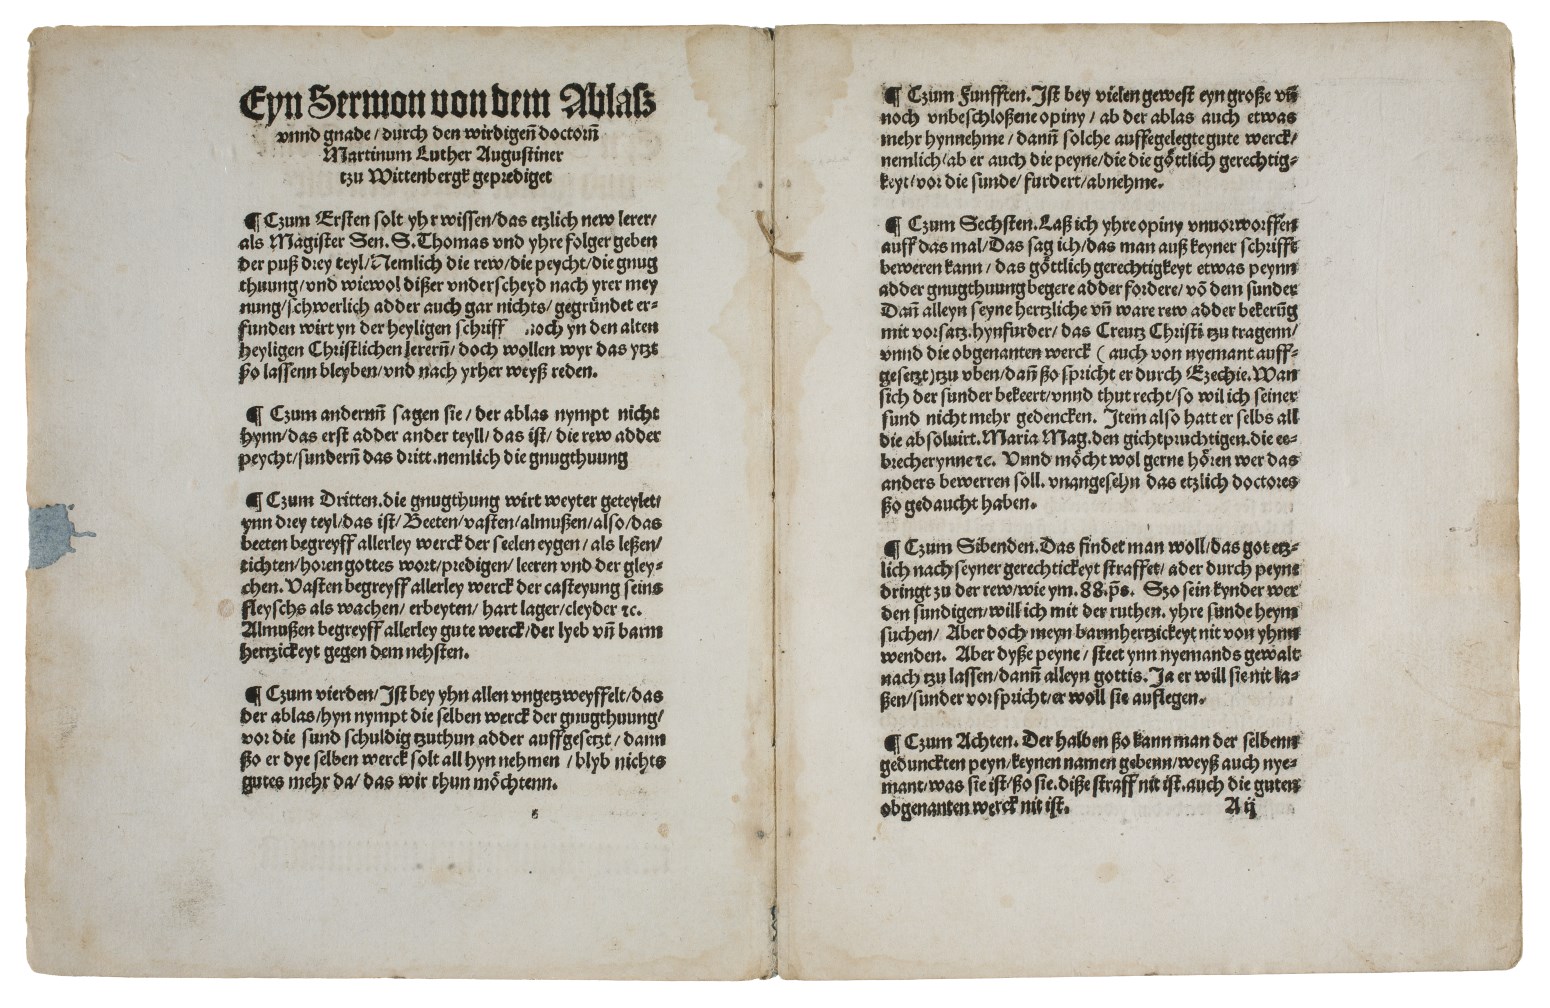 Eyn Sermon von dem Ablaß
vnnd gnade / durch den wirdigen̄ doctorn̄
Martinum Luther Augustiner
tzu Wittenbergk geprediget
¶ Czum Ersten solt yhr wissen/das etzlich new lerer/
als Magister Sen. S. Thomas vnd yhre folger geben
der puß drey teyl/Nemlich die rew/die peycht/die gnug
thuung/vnd wiewol dißer vnderscheyd nach yrer mey
nung/schwerlich adder auch gar nichts/ gegründet er-
funden wirt yn der heyligen schriff noch yn den alten
heyligen Christlichen lerern̄/ doch wollen wyr das ytzt
ßo lassenn bleyben/vnd nach yrher weyß reden.
¶ Czum andernn̄ sagen sie / der ablas nympt nicht
hynn/das erst adder ander teyll/ das ist/ die rew adder
peycht/sundern̄ das dritt.nemlich die gnugthuung
¶ Czum Dritten.die gnugthung wirt weyter geteylet/
ynn drey teyl/das ist/ Beeten/vasten/almußen/also/das
beeten begreyff allerley werck der seelen eygen/ als leßen/
tichten/horen gottes wort/predigen/ leeren vnd der gley-
chen. Vasten begreyff allerley werck der casteyung seins
fleyschs als wachen/ erbeyten/ hart lager/cleyder ꝛc.
Almußen begreyff allerley gute werck/der lyeb vn̄ barm
hertzickeyt gegen dem nehsten.
¶ Czum vierden/Ist bey yhn allen vngetzweyffelt/das
der ablas/hyn nympt die selben werck der gnugthuung/
vor die sund schuldig tzuthun adder auffgesetzt/ dann
ßo er dye selben werck solt all hyn nehmen / blyb nichts
gutes mehr da/ das wir thun möchtenn.
¶ Czum Funfften. Ist bey vielen gewest eyn große vn̄
noch vnbeschloßene opiny / ab der ablas auch etwas
mehr hynnehme / dann̄ solche auffegelegte gute werck/
nemlich/ab er auch die peyne/die die göttlich gerechtig-
keyt/vor die sunde/ furdert/abnehme.
¶ Czum Sechsten. Laß ich yhre opiny vnuorworffen
auff das mal/Das sag ich/das man auß keyner schrifft
beweren kann / das göttlich gerechtigkeyt etwas peynn
adder gnugthuung begere adder fordere/ vō dem sunder
Dan̄ alleyn seyne hertzliche vn̄ ware rew adder bekerūg
mit vorsatz.hynfurder/ das Creutz Christi tzu tragenn/
vnnd die obgenanten werck ( auch von nyemant auff-
gesetzt)tzu vben/dan̄ ßo spricht er durch Ezechie.Wan
sich der sunder bekeert/vnnd thut recht/so wil ich seiner
sund nicht mehr gedencken. Item also hatt er selbs all
die absoluirt. Maria Mag.den gichtpruchtigen.die ee-
brecherynne ꝛc. Vnnd möcht wol gerne hören wer das
anders bewerren soll. vnangesehn das etzlich doctores
ßo gedaucht haben.
¶ Czum Sibenden. Das findet man woll/das got etz-
lich nach seyner gerechtickeyt straffet/ ader durch peyne
dringt zu der rew/wie ym. 88. p̄s. Szo sein kynder wer
den sundigen/will ich mit der ruthen. yhre sunde heym
suchen/ Aber doch meyn barmhertzickeyt nit von yhnn
wenden. Aber dyße peyne / steet ynn nyemands gewalt
nach tzu lassen/dann̄ alleyn gottis. Ja er will sie nit la-
ßen/sunder vorspricht/er woll sie auflegen.
¶ Czum Achten. Der halben ßo kann man der selbenn
gedunckten peyn/keynen namen gebenn/weyß auch nye-
mant/was sie ist/ßo sie.diße straff nit ist.auch die guten
obgenanten werck nit ist. A ij